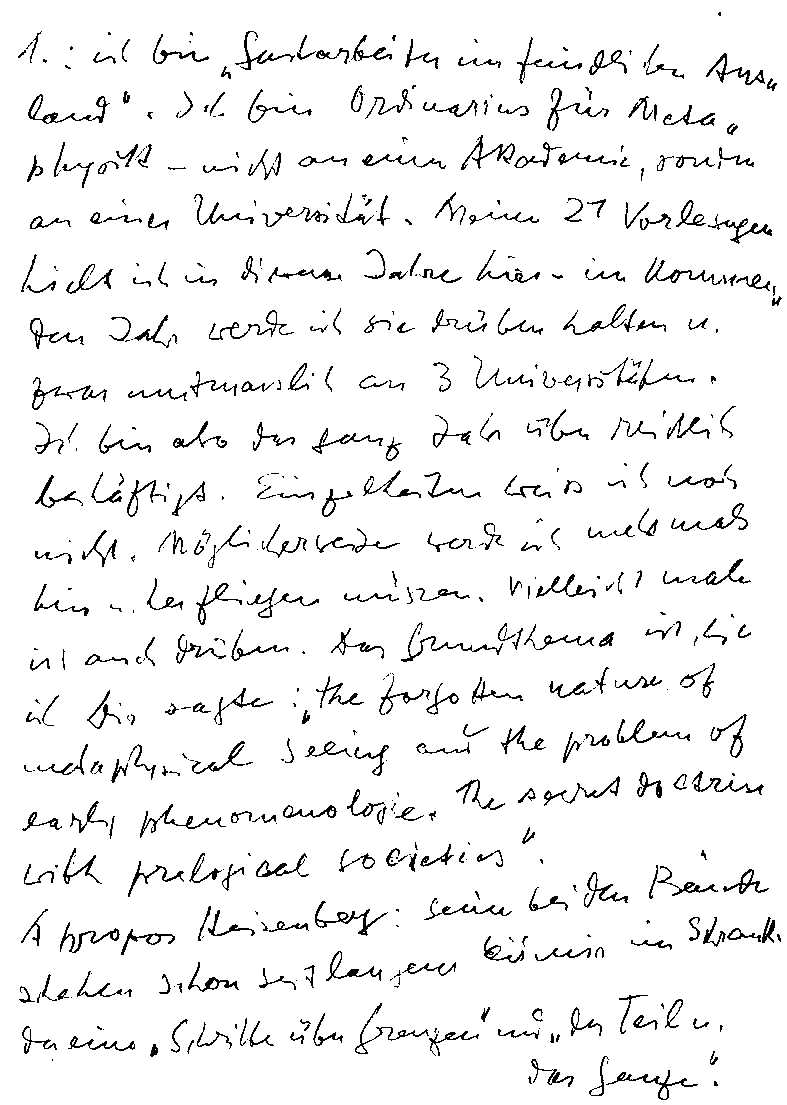 1.: ich bin „Gastarbeiter im feindlichen Aus„
land". Ich bin Ordinarius für Meta„
physik – nicht an einer Akademie, sondern
an einer Universität. Meine 21 Vorlesungen
hielt ich in diesem Jahre hier – im kommen„
den Jahr werde ich sie drüben halten u.
zwar mutmasslich an 3 Universitäten.
Ich bin also das ganz Jahr über reichlich
beschäftigt. Einzelheiten weiss ich noch
nicht. Möglicherweise werde ich mehrmals
hin u. herfliegen müssen. Vielleicht male
ich auch drüben. Das Grundthema ist, wie
ich Dir sagte: „the forgotten nature of
metaphysical Seeing and the problem of
early phenomenologie. The secret doctrin
with prelogical societies".
A propos Heisenberg: seine beiden Bände
stehen schon seit langem bei mir im Schrank.
der eine „Schritte über Grenzen" und „der Teil u.
das Ganze".